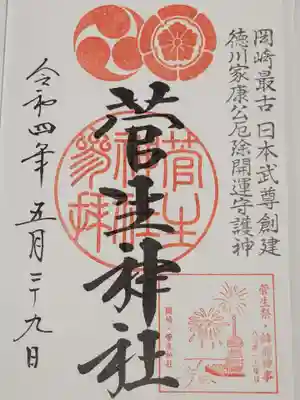 岡崎最古 日本武尊創建
徳川家康公厄除開運守護神
菅生神社
令和四年 五月二十九日
菅生神社参拝
菅生祭・鉾船神事
岡崎・菅生神社